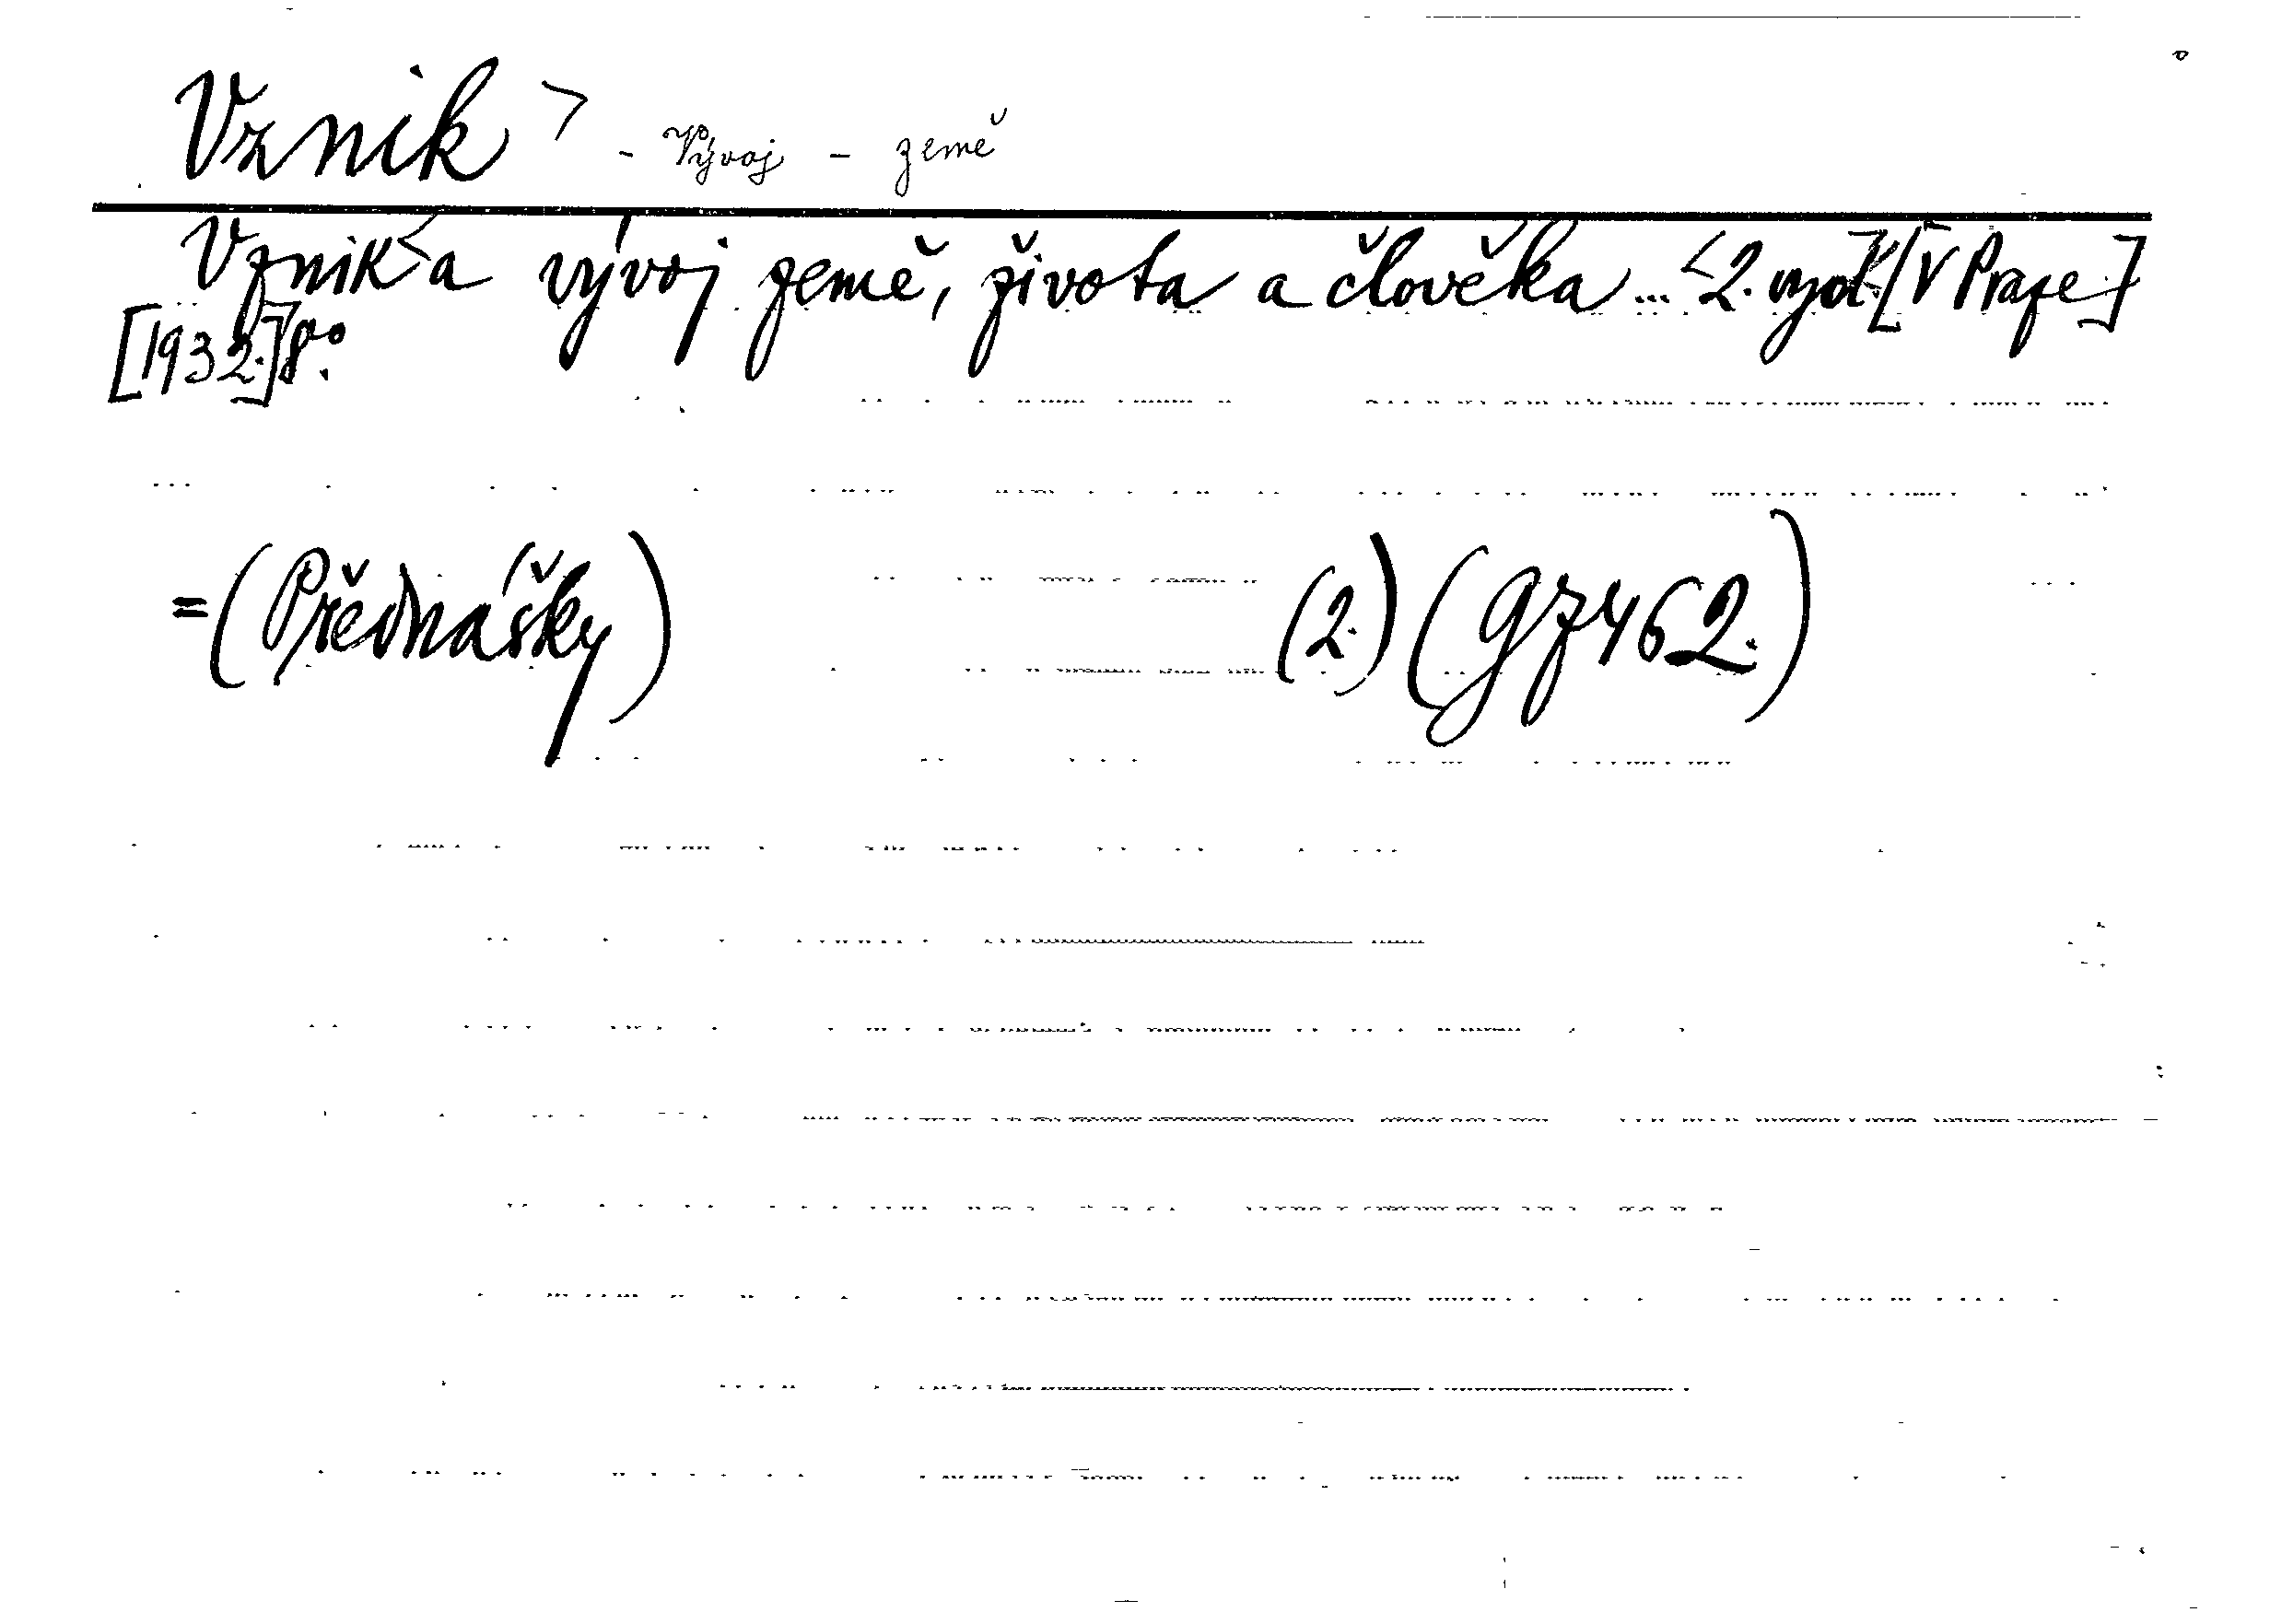 Vznik - Vývoj - země
Vznik a vývoj země, života a člověka ... 2. vyd. [V Praze]
[1932.] 8°.
= (Přednášky) (2.) (g 7462.)